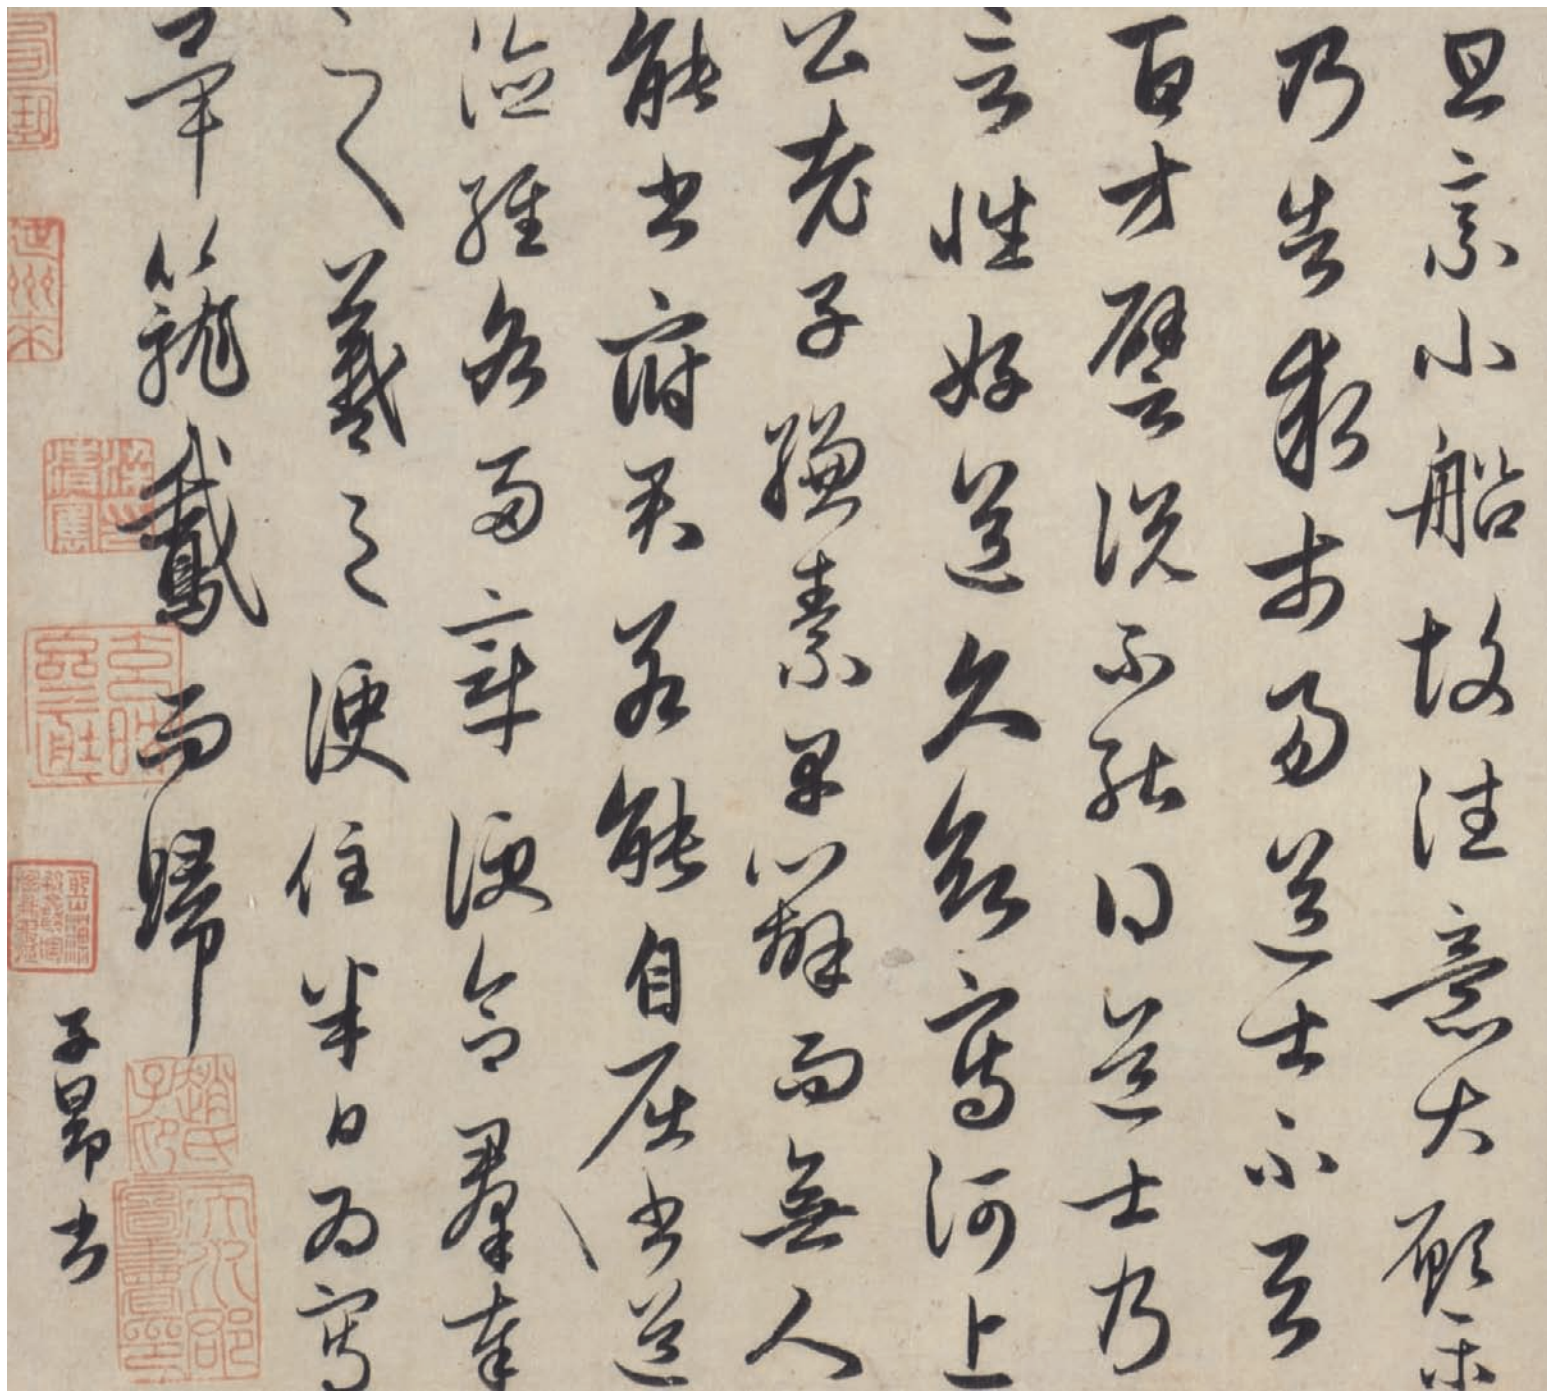 旦乘小船故往意大願樂
乃告求市易道士不与
百方譬說不能得道士乃
言性好道久欲寫河上
公老子縑素早辦而無人
能書府君若能自屈書道
德經各兩章便合羣奉
之羲之便住半日為寫
畢籠鵞而歸
子昂書
趙氏子昂
天水郡圖書印